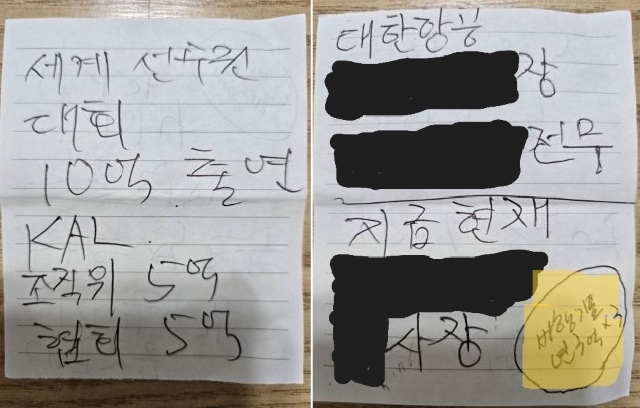 세계 선수권
대회
10억 출연
KAL.
조직위 5억
협회 5억
대한항공
장
전무
지금현재
사장
비행기표
연 3억 x 3